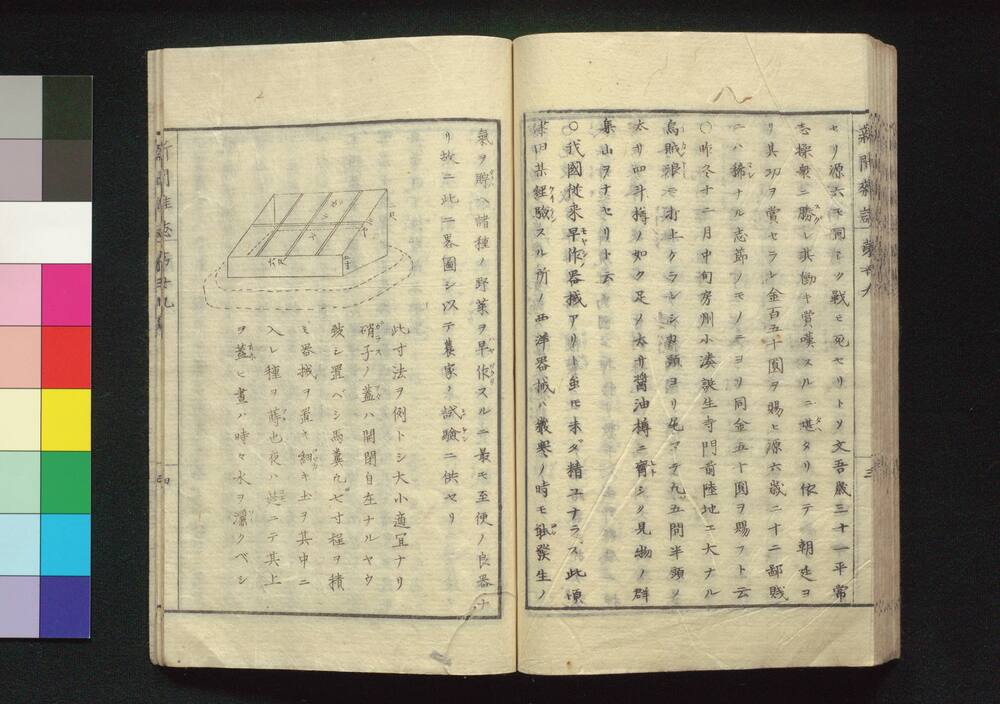 新聞雑誌 第廿九
セリ源六モ同シク戦ヒ死セリトソ文吾歳三十一平常
志操衆ニ勝レ其働キ賞嘆スルニ堪タリ依テ 朝廷ヨ
リ其功ヲ賞セラレ金百五十圓ヲ賜ヒ源六歳二十二鄙賎
ニハ稀ナル志節ノモノニヨリ同金五十圓ヲ賜フト云
〇昨冬十二月中旬房刕小湊誕生寺門前陸地エ大ナル
烏賊浪ニ打上ケラレシカ頭ヨリ尾マテ凡五間半頭ノ
太サ四斗樽ノ如ク足ノ太サ醤油樽ニ齊シク見物ノ群
集山ヲナセリト云
〇我國従来早作器械アリト虽モ未ダ精工ナラス此頃
津田某経験スル所ノ西洋器械ハ厳寒ノ時モ能發生ノ
三
氣ヲ貯ヘ諸種ノ野菜ヲ早作スルニ最モ至便ノ良器ナ
リ故ニ此ニ畧圖シ以テ農家ノ試験ニ供セリ
此寸法ヲ例トシ大小適冝ナリ
硝子ノ蓋ハ開閉自在ナルヤウ
致シ置ベシ馬糞凡七寸程ヲ積
ミ器械ヲ置キ細キ土ヲ其中ニ
入レ種ヲ蒔也夜ハ莚ニテ其上
ヲ蓋ヒ晝ハ時々水ヲ灌クベシ
四